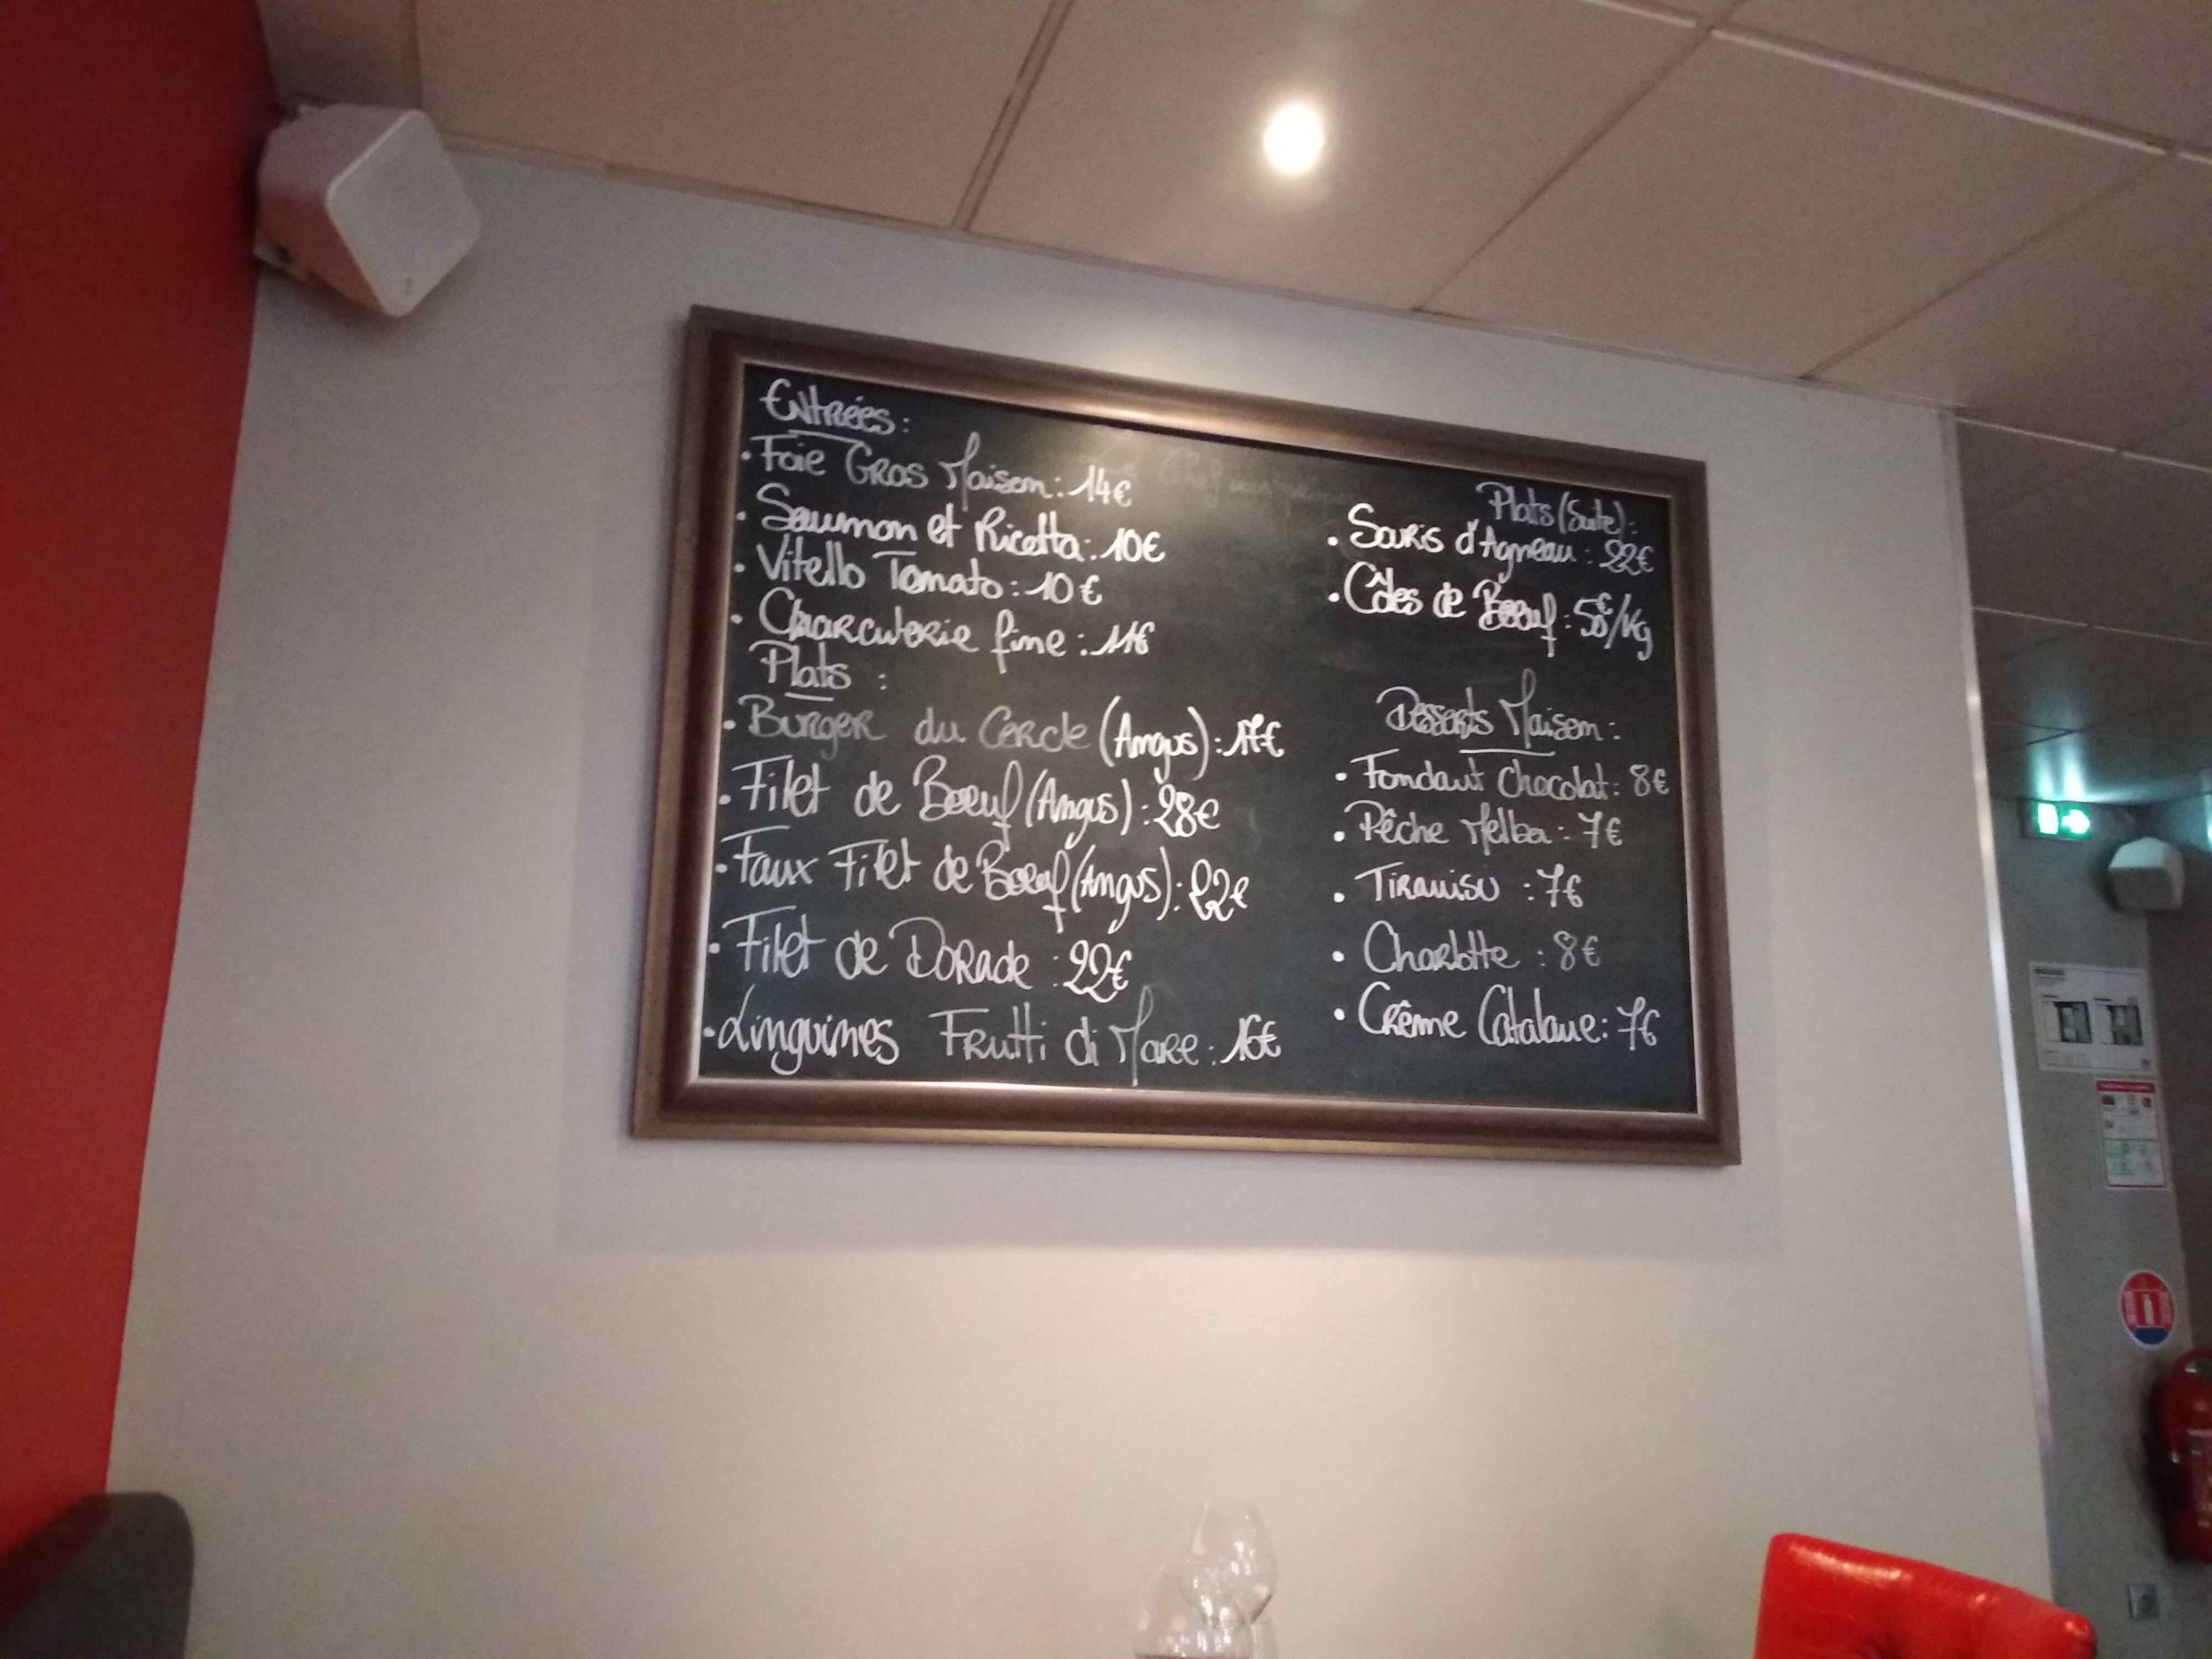 Entrées :
• Foie Gras Maison : 14€
• Saumon et Ricotta : 10€
• Vitello Tomato : 10€
• Charcuterie fine : 11€
Plats :
• Burger du Cercle (Angus) : 17€
• Filet de Boeuf (Angus) : 28€
• Faux Filet de Boeuf (Angus) : 22€
• Filet de Dorade : 22€
• Linguines Frutti di Mare : 16€
Plats (Suite) :
• Souris d'Agneau : 22€
• Côtes de Boeuf : €/Kg
Desserts Maison :
• Fondant Chocolat : 8€
• Pêche Melba : 7€
• Tiramisu : 7€
• Charlotte : 8€
• Crème Catalane : 7€